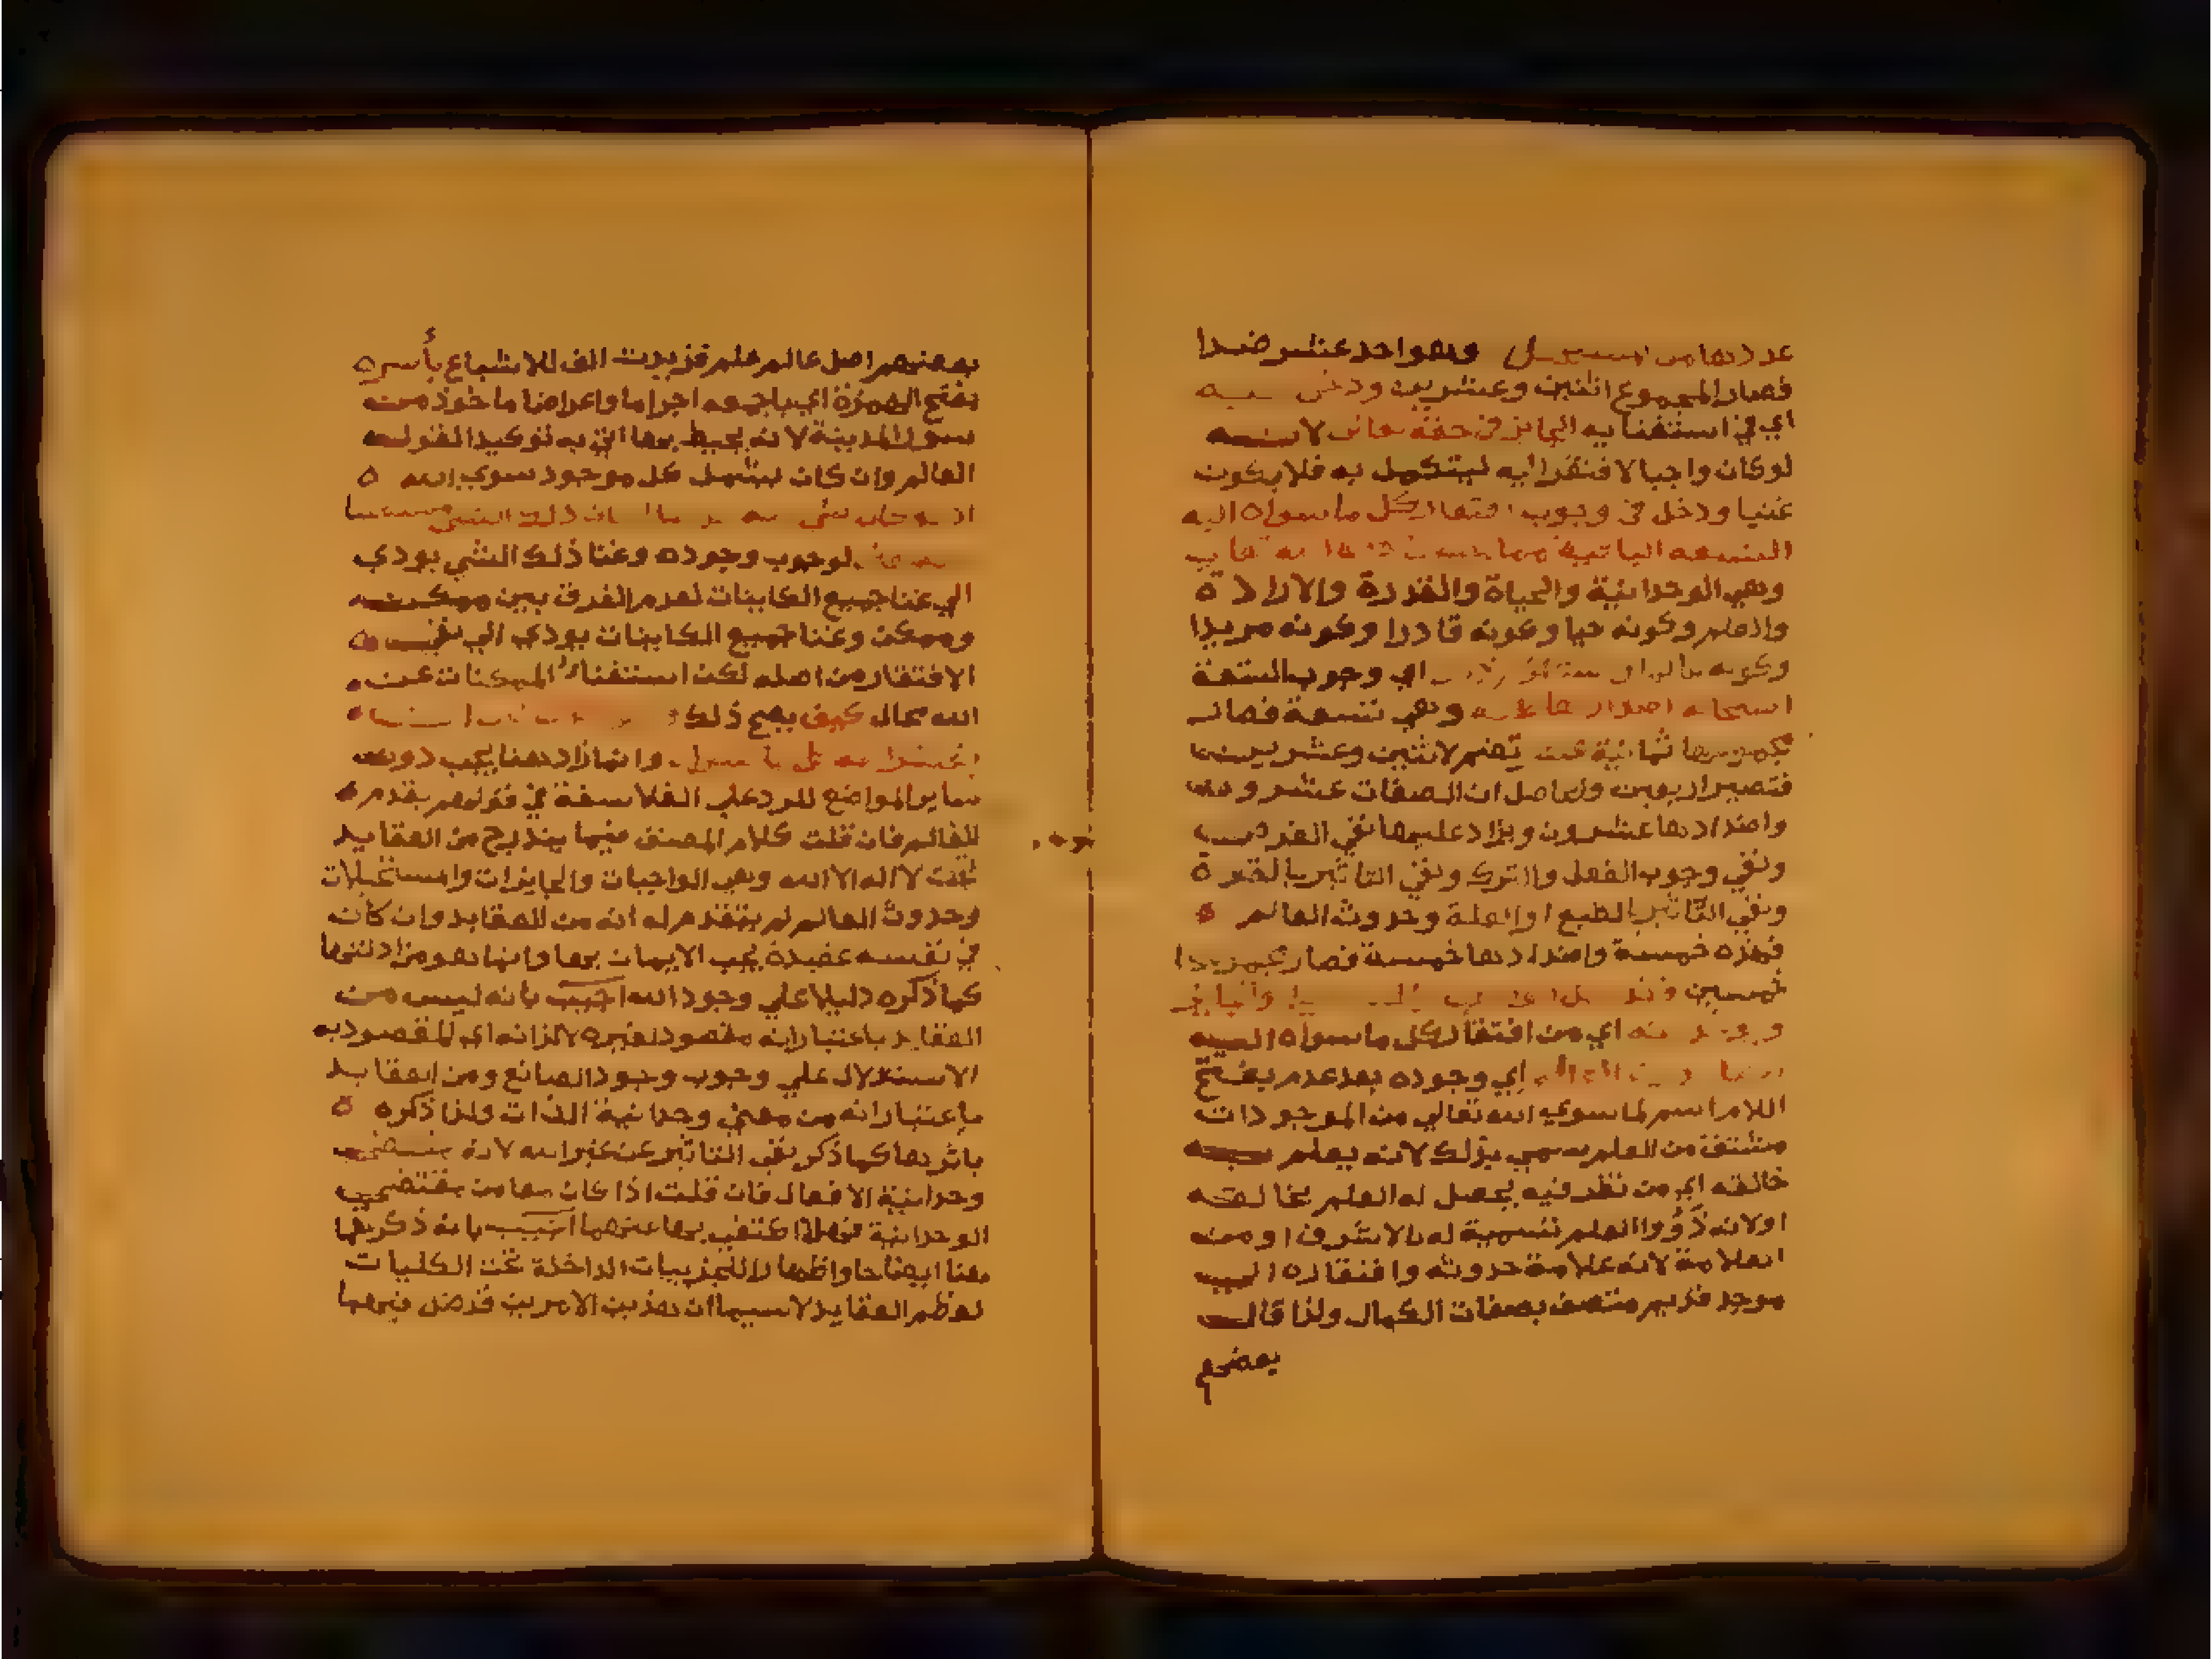 عددها من المستحيل وهو احد عشر ضدا
فصار المجموع اثنين وعشرين ودخل فيه
اي في استغنايه الجايز في حقه تعالى لانه
لو كان واجبا لافتقر اليه ليتكمل به فلا يكون
غنيا ودخل في وجوب افتقار كل ما سواه اليه
التسعه الباقية مما
وهي الوحدانية والحياة والقدرة والارادة
والعلم وكونه حيا وكونه قادرا وكونه مريدا
وكونه عالما اي وجوب التسعة
استحالة اضدادها وهي تسعة فصار
مجموعها ثمانية عشر تضم لاثنين وعشرين
فتصير اربعين والحاصل ان الصفات عشرون
واضدادها عشرون ويزاد عليها نفي الغرض
ونفي وجوب الفعل والترك ونفي التاثير بالقوة
ونفي التاثير بالطبع او العلة وحدوث العالم
فهذه خمسة واضدادها خمسة فصار
خمسين
ويوخذ منه اي من افتقار كل ما سواه اليه
حدوث العالم اي وجوده بعد عدم بفتح
اللام اسم لما سوي الله تعالي من الموجودات
مشتق من العلم سمي بذلك لانه يعلم به
خالقه اي من نظر فيه يحصل له العلم بخالقه
او لانه ذووا العلم تسمية له بالاشرف او من
العلامة لانه علامة حدوثه وافتقاره الي
موجد قديم متصف بصفات الكمال ولذا قال
بعضهم
بعضهم اصل عالم علم فزيدت الف للاشباع بأسره
بفتح الهمزة اي باجمعه اجراما واعراضا ماخوذ من
سور المدينة لانه يحيط بها اتي به توكيدا لقوله
العالم وان كان يشمل كل موجود سوي الله
اذ لو كان شي منه قديما لكان ذلك الشي مستغنيا
لوجوب وجوده وغنا ذلك الشي يودي
الي غنا جميع الكاينات لعدم الفرق بين ممكن
وممكن وغنا جميع الكاينات يودي الي نفي
الافتقار من اصله لكن استغناء الممكنات عن
الله محال كيف يصح ذلك
يفتقر اليه كل ما سواه وانما زاد هنا يجب دون
ساير المواضع للرد علي الفلاسفة في قولهم بقدم
العالم فان قلت كلام المصنف فيما يندرج من العقايد
تحت لا اله الا الله وهي الواجبات والجايزات والمستحيلات
وحدوث العالم لم يتقدم له انه من العقايد وان كان
في نفسه عقيدة يجب الايمان بها وانما هو من ادلتها
كما ذكره دليلا علي وجود الله اجيب بانه ليس من
العقايد باعتبار انه مقصود لغيره لا لذاته اي المقصود به
الاستدلال علي وجوب وجود الصانع ومن العقايد
باعتبار انه من معني وحدانية الذات ولذا ذكره
باثرها كما ذكر نفي التاثير عن غير الله لانه مقتضي
وحدانية الافعال فان قلت اذا كان معا من مقتضي
الوحدانية فهلا اكتفي بها عنهما اجيب بانه ذكرهما
هنا ايضاحا واظهارا للجزييات الداخلة تحت الكليات
لعظم العقايد لاسيما ان هذين الامرين قد ضل فيهما